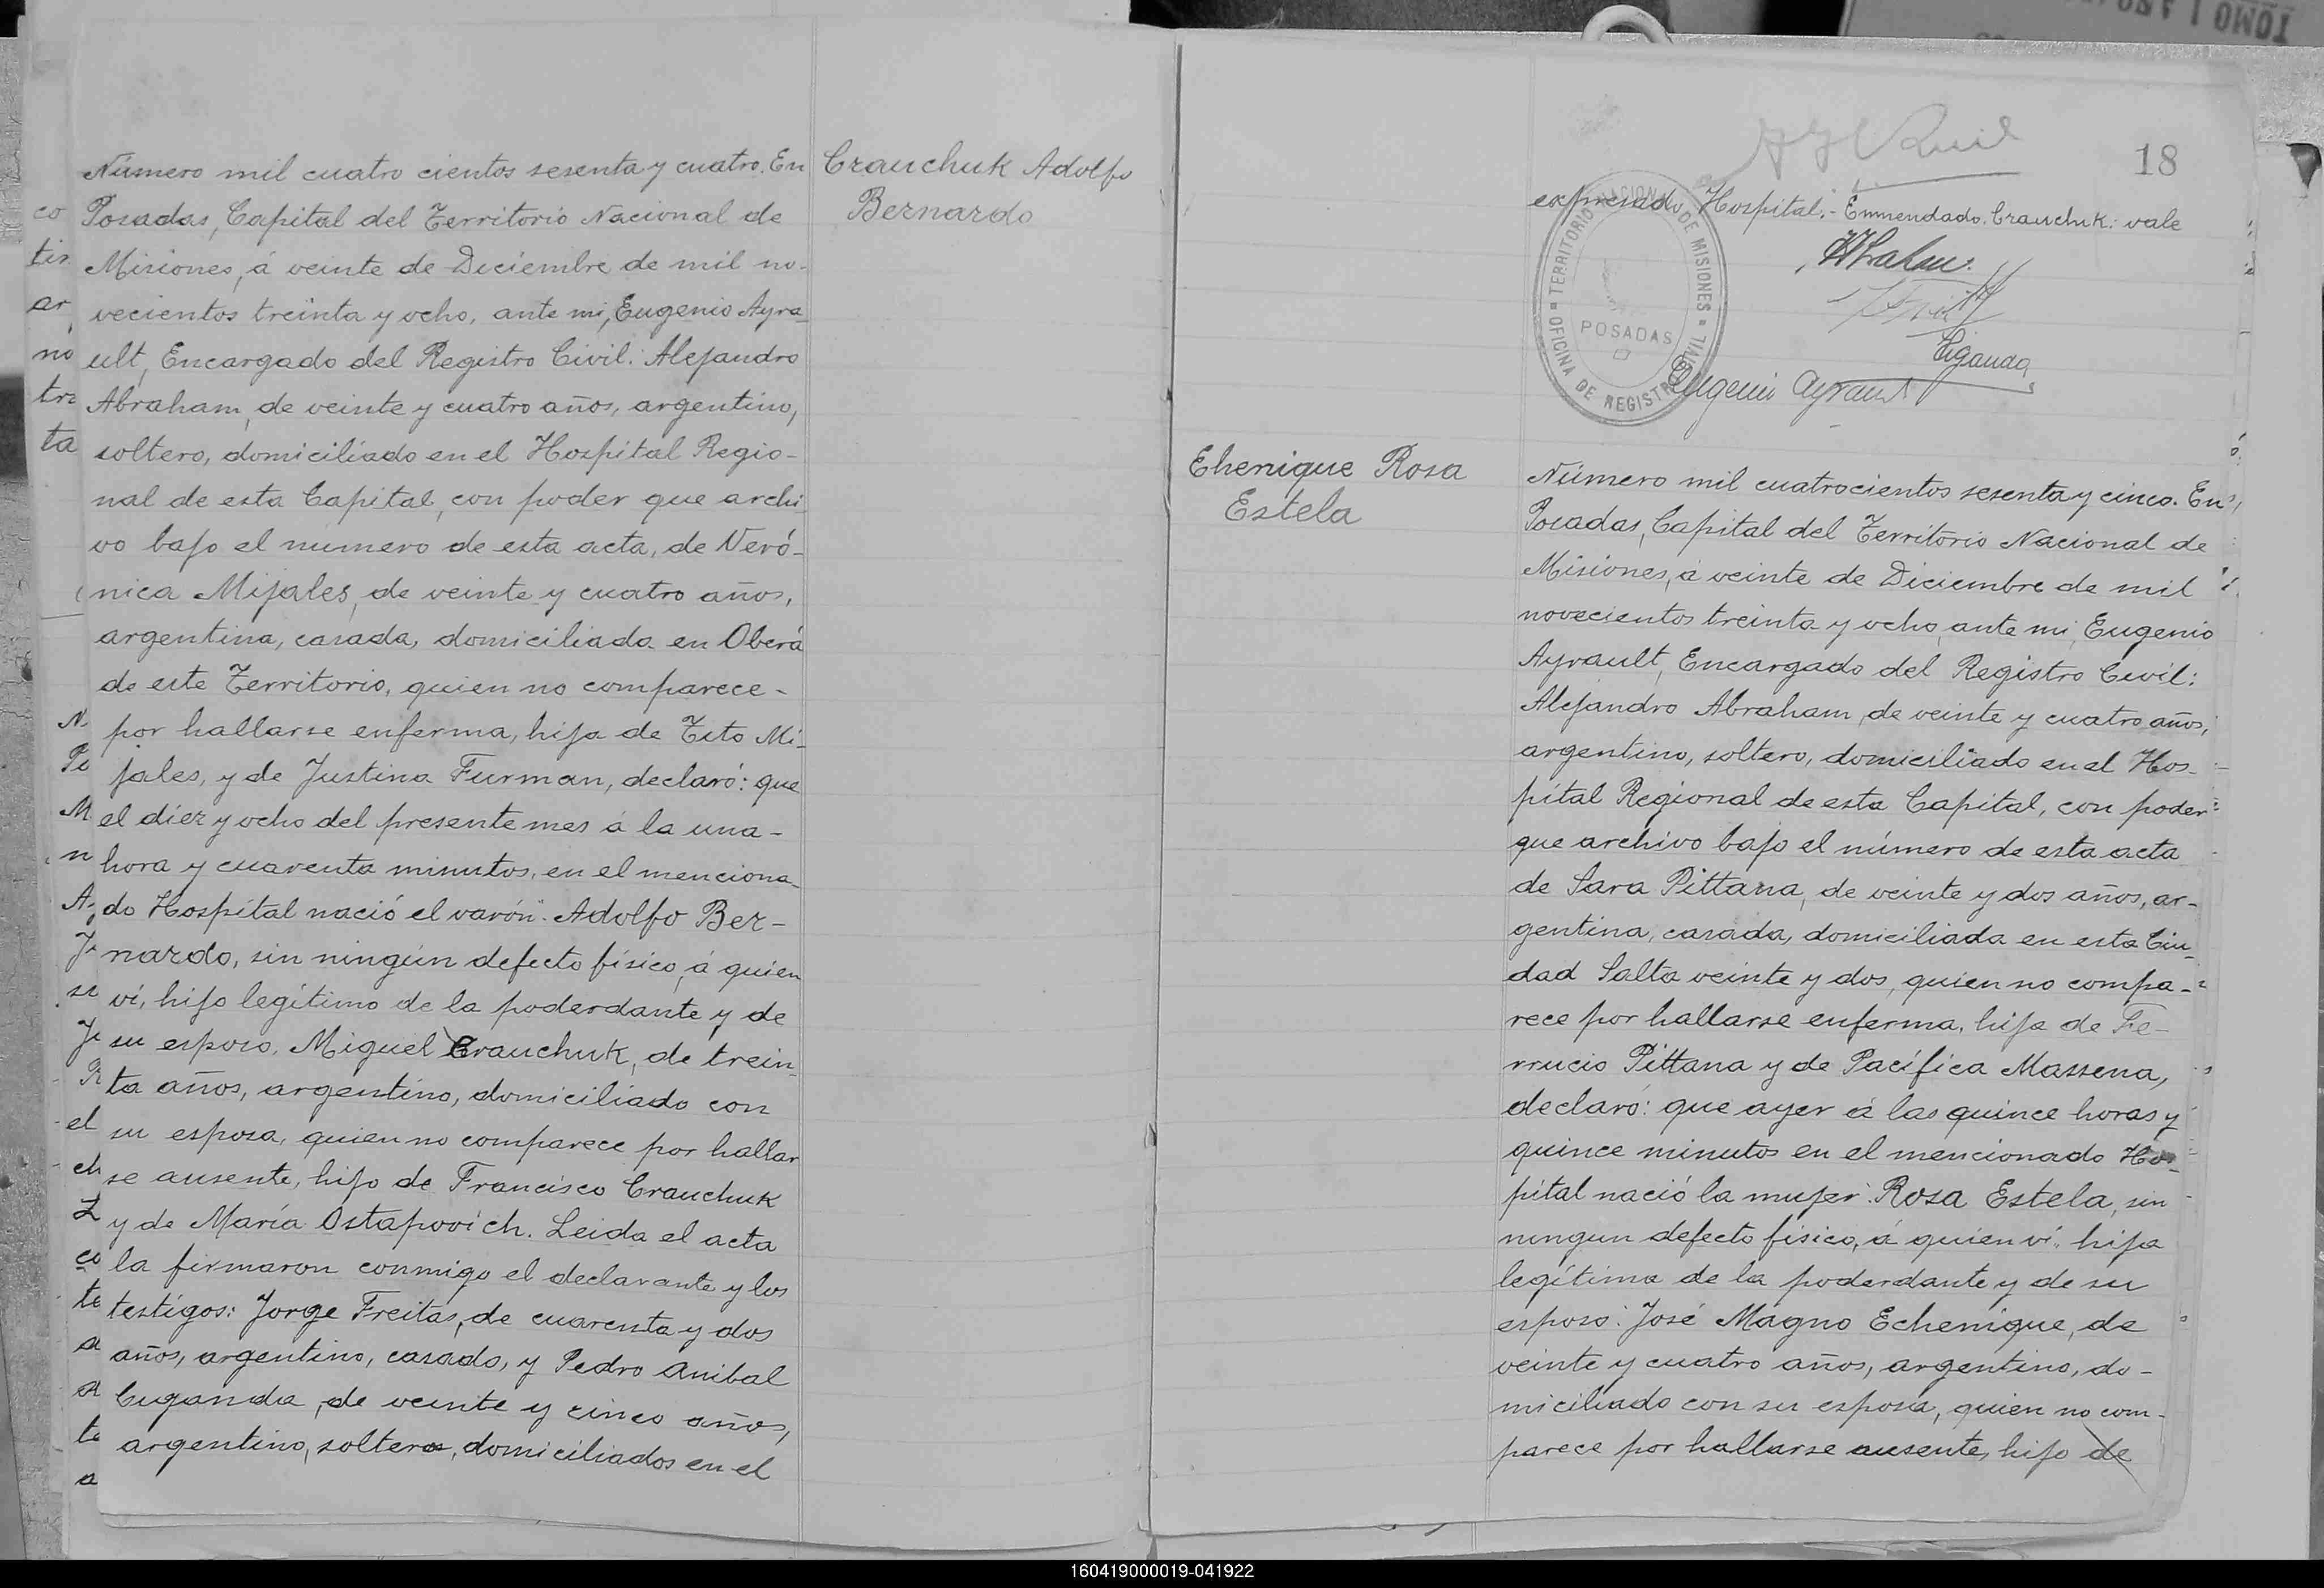 TOMO I
Crauchuk Adolfo
Bernardo
Número mil cuatro cientos sesenta y cuatro. En
Posadas, Capital del Territorio Nacional de
Misiones, á veinte de Diciembre de mil no-
vecientos treinta y ocho, ante mi, Eugenio Ayra-
ult, Encargado del Registro Civil: Alejandro
Abraham, de veinte y cuatro años, argentino,
soltero, domiciliado en el Hospital Regio-
nal de esta Capital, con poder que archi
vo bajo el numero de esta acta, de Veró-
nica Mijales, de veinte y cuatro años,
argentina, casada, domiciliada en Oberá
de este Territorio, quien no comparece-
por hallarse enferma, hija de Tito Mi-
jales, y de Justina Furman, declaró: que
el diez y ocho del presente mes á la una-
hora y cuarenta minutos, en el menciona-
do Hospital nació el varón: Adolfo Ber-
nardo, sin ningún defecto físico, á quien
ví, hijo legítimo de la poderdante y de
su esposo, Miguel Crauchuk, de trein-
ta años, argentino, domiciliado con
su esposa, quien no comparece por hallar
se ausente, hijo de Francisco Crauchuk
y de María Ostapovich. Leida el acta
la firmaron conmigo el declarante y los
testigos: Jorge Freitas, de cuarenta y dos
años, argentino, casado, y Pedro Anibal
Ciganda, de veinte y cinco años,
argentino, soltero, domiciliados en el
18
expresado Hospital.- Enmendado. Crauchuk: vale
TERRITORIO NACIONAL DE MISIONES
OFICINA DE REGISTRO CIVIL
POSADAS
Ciganda
Eugenio Ayrault
Ehenique Rosa
Estela
Número mil cuatrocientos sesenta y cinco. En
Posadas, Capital del Territorio Nacional de
Misiones, á veinte de Diciembre de mil
novecientos treinta y ocho, ante mi, Eugenio
Ayrault, Encargado del Registro Civil:
Alejandro Abraham, de veinte y cuatro años,
argentino, soltero, domiciliado en el Hos-
pital Regional de esta Capital, con poder
que archivo bajo el número de esta acta
de Sara Pittana, de veinte y dos años, ar-
gentina, casada, domiciliada en esta Ciu-
dad Salta veinte y dos, quien no compa-
rece por hallarse enferma, hija de Fe-
rrucio Pittana y de Pacífica Massena,
declaró: que ayer á las quince horas y
quince minutos en el mencionado Hos-
pital nació la mujer: Rosa Estela, sin
ningun defecto físico, á quien ví, hija
legítima de la poderdante y de su
esposo: José Magno Echenique, de
veinte y cuatro años, argentino, do-
miciliado con su esposa, quien no com-
parece por hallarse ausente, hijo de
160419000019-041922